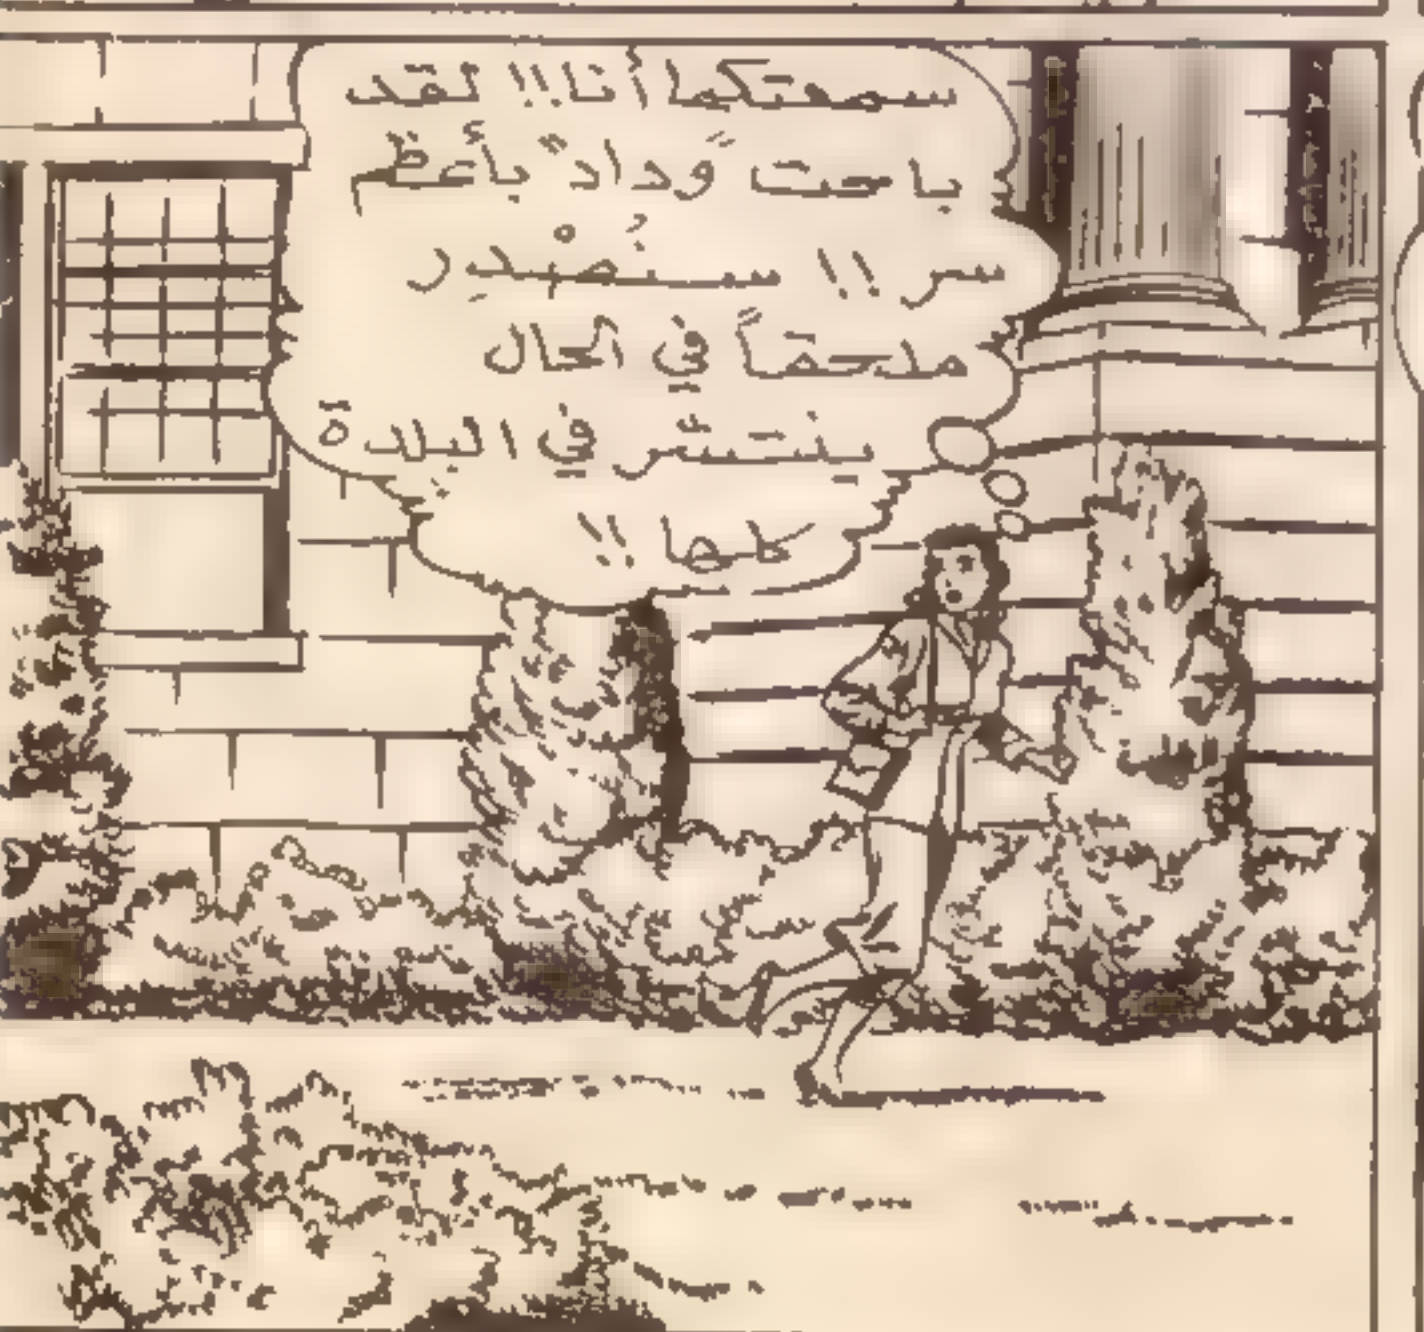 سمعتكما أنا!! لقد
باحت "وداد" بأعظم
سر!! سنُصْدِر
ملحقاً في الحال
ينتشر في البلدة
كلها!!